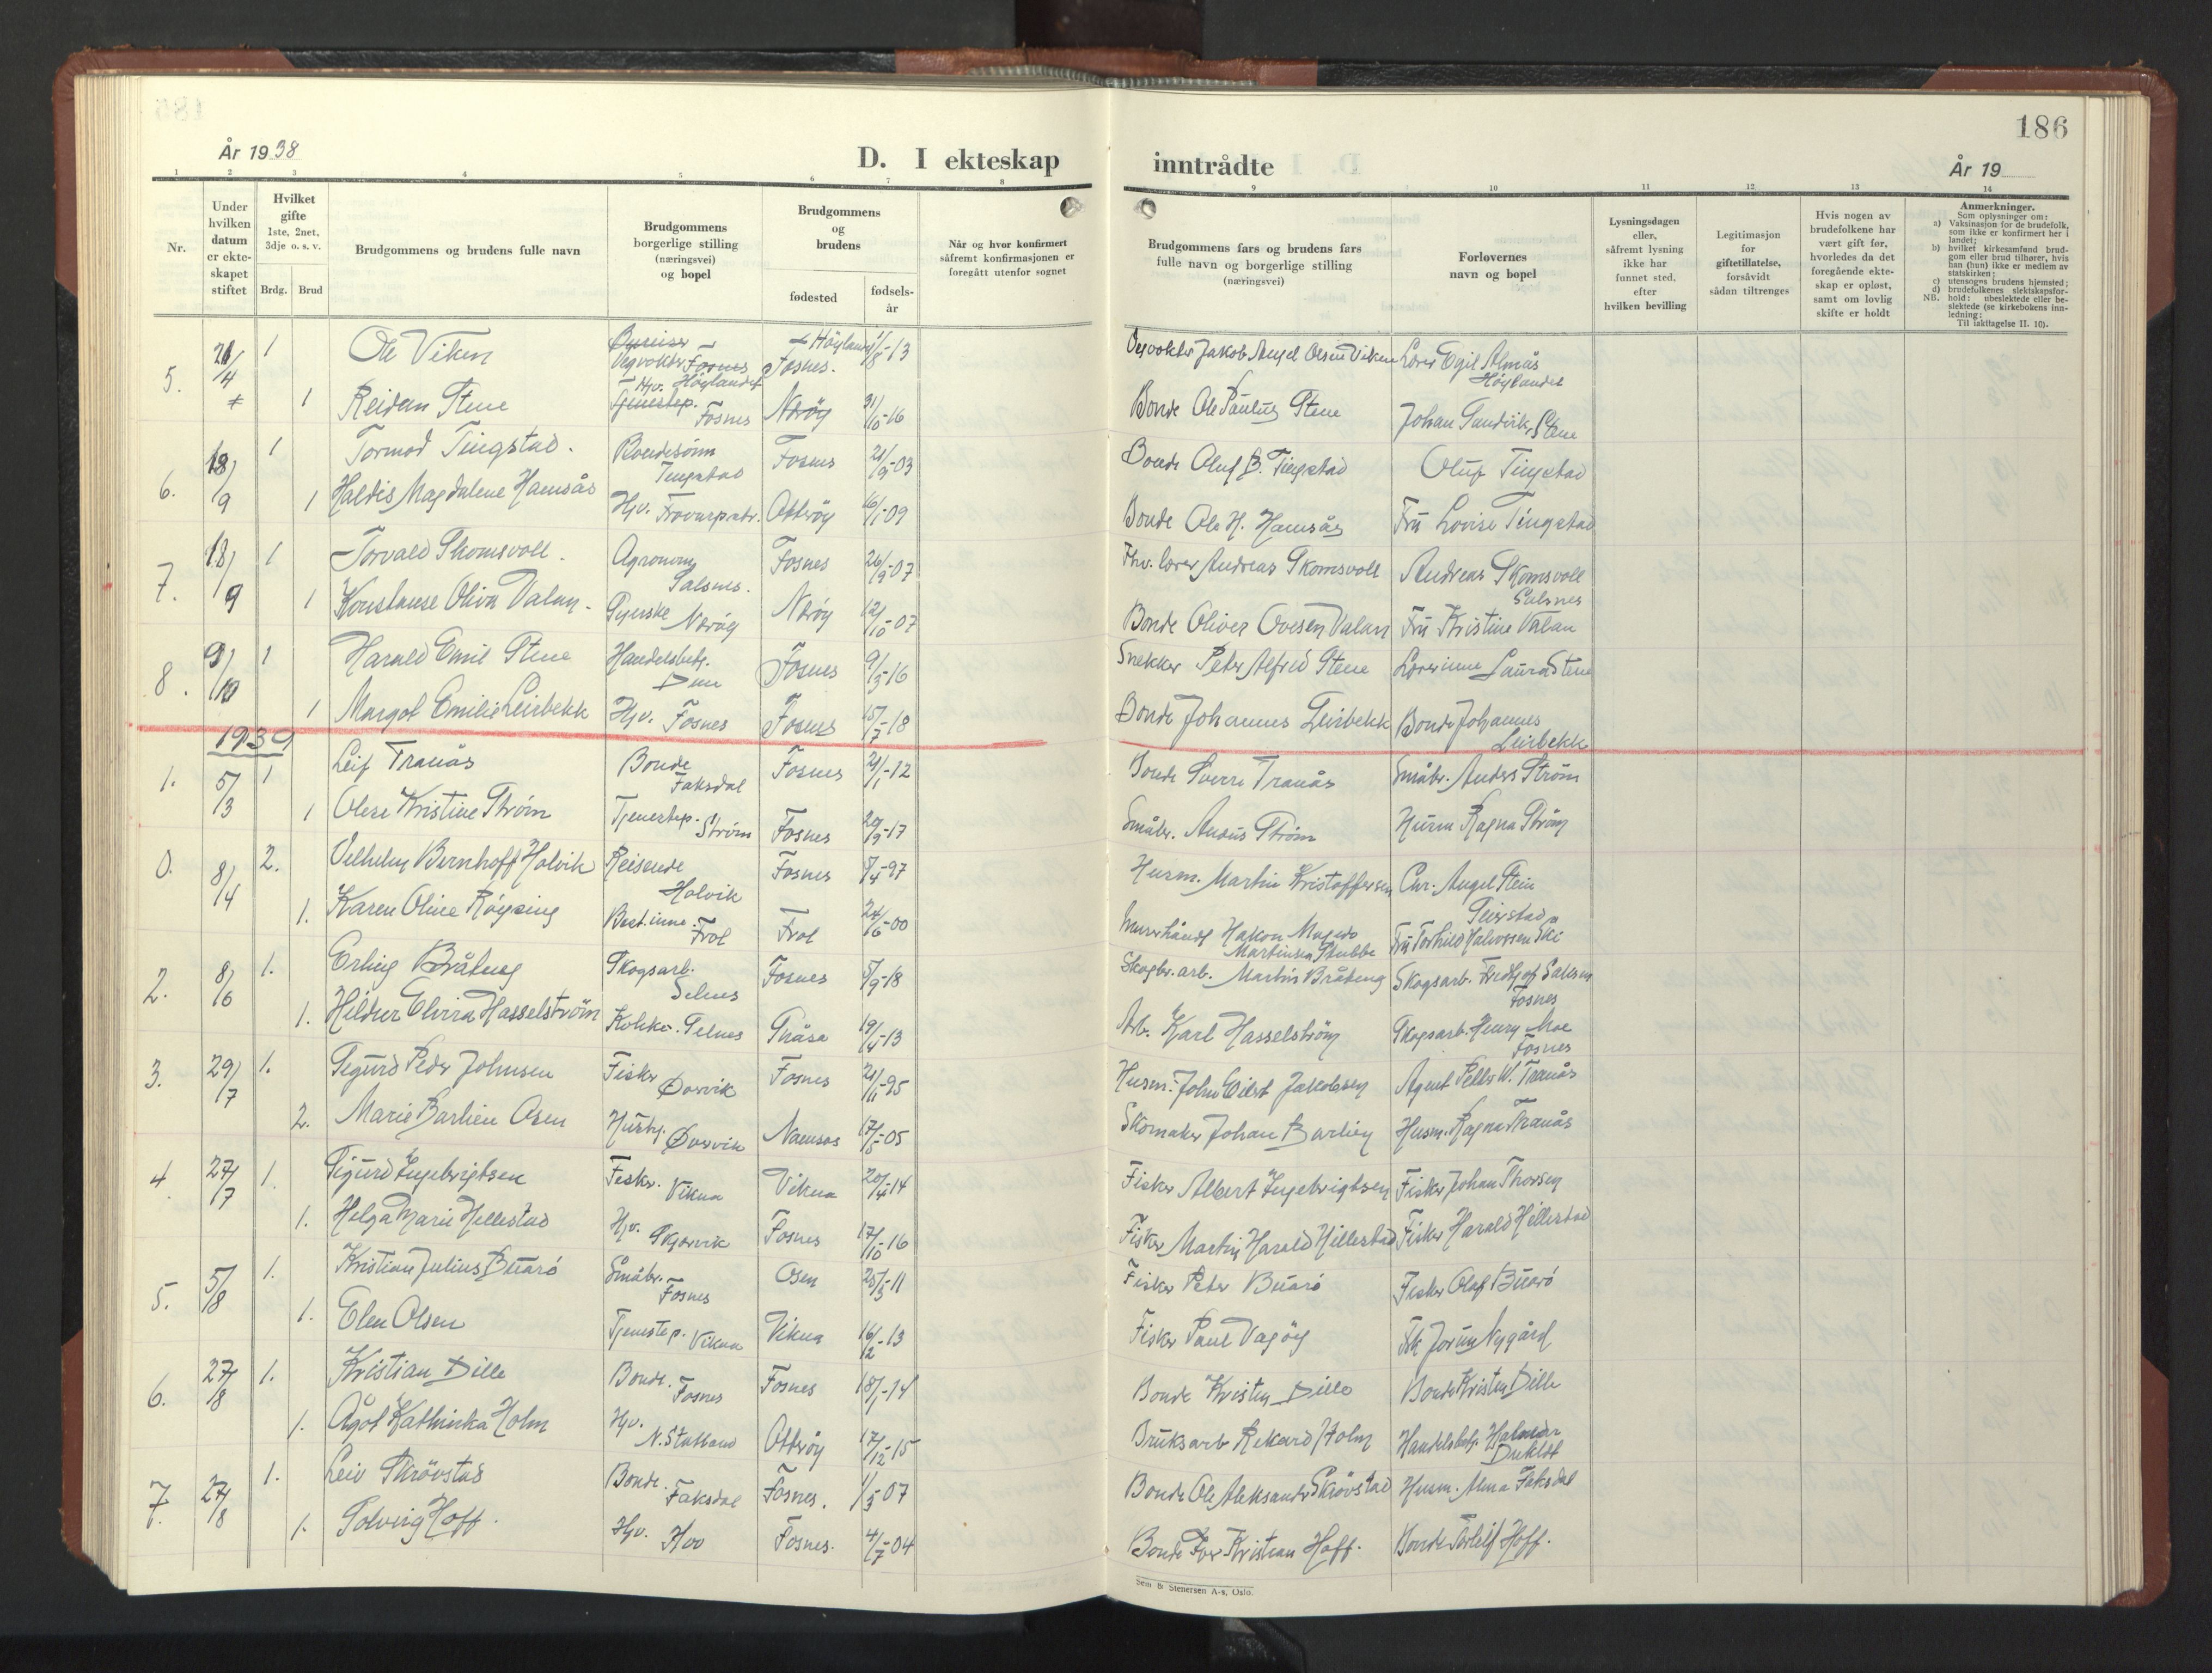 186
År 1938
D. I ekteskap
inntrådte
År 19
1 2 3 4 5 6 7 8 9 10 11 12 13 14
Nr.
Under hvilken datum er ekteskapet stiftet
Hvilket gifte 1ste, 2net, 3dje o. s. v.
Brdg. Brud
Brudgommens og brudens fulle navn
Brudgommens borgerlige stilling (næringsvei) og bopel
Brudgommens og brudens
fødested
fødsels-år
Når og hvor konfirmert såfremt konfirmasjonen er foregått utenfor sognet
Brudgommens fars og brudens fars fulle navn og borgerlige stilling (næringsvei)
Forlovernes navn og bopel
Lysningsdagen eller, såfremt lysning ikke har funnet sted, efter hvilken bevilling
Legitimasjon for giftetillatelse, forsåvidt sådan tiltrenges
Hvis nogen av brudefolkene har vært gift før, hvorledes da det foregående ekteskap er opløst, samt om lovlig skifte er holdt
Anmerkninger.
Som oplysninger om:
a) Vaksinasjon for de brudefolk, som ikke er konfirmert her i landet;
b) hvilket kirkesamfund brudgom eller brud tilhører, hvis han (hun) ikke er medlem av statskirken;
c) utensogns brudens hjemsted;
d) brudefolkenes slektskapsforhold: ubeslektede eller beslektede (se kirkebokens innledning:
NB. Til iakttagelse II. 10).
5. 1 Ole Viken Vegvokter Fosnes Fosnes. -13 Vegvokter Jakob Angel Olsen Viken Lærer Egil Almås Høylandet
1 Reidun Stene Fosnes Nærøy 31/10-16 Bonde Ole Paulus Stene Johan Sandvik, Stene
6. 18/9 1 Tormod Tingstad. Bondesønn Tingstad Fosnes 21/9-03 Bonde Oluf B. Tingstad Oluf Tingstad
1 Haldis Magdalene Hamsås Hjv. Otterøy 16/1-09 Bonde Ole H. Hamsås Fru Lovise Tingstad
7. 18/9 1 Torvald Skomsvoll. Agronom Salsnes. Fosnes 26/9-07 Fhv. lærer Andreas Skomsvoll Andreas Skomsvoll Salsnes
1 Konstanse Oliva Valan. Syerske Nærøy Nærøy 12/10-07 Bonde Oliver Ovesen Valan Fru Kristine Valan
8. 9/10 1 Harald Emil Stene Handelsbetj. Dun Fosnes 9/5-16 Snekker Peter Alfred Stene Lærerinne Laura Stene
1 Margot Emilie Leirbekk Hjv. Fosnes Fosnes 15/7-18 Bonde Johannes Leirbekk Bonde Johannes Leirbekk
1939
1. 5/3 1 Leif Tranås Bonde Faksdal Fosnes 21/1-12 Bonde Sverre Tranås Småbr. Anders Strøm
1 Olese Kristine Strøm Tjenestep. Strøm Fosnes 20/9-17 Småbr. Strøm Husm. Ragna Strøm
0. 8/4 2. Vilhelm Bernhoff Holvik Reisende Holvik Fosnes 5/4-97 Husm. Martin Kristoffersen Chr. Angel Stein Seierstad
1. Karen Oline Røysing Best.inne. Frol Frol 24/6-00 Håkon Martinsen Stubbe Fru Torhild Halvorsen Ski
2. 8/6 1. Erling Bråteng Skogsarb. Selnes Fosnes 5/9-18 Skogbr. arb. Martin Bråteng Skogsarb. Fridtjof Salsen Fosnes
1. Hildur Elvira Hasselstrøm Kokke. Selnes Snåsa 19/4-13 Arb. Karl Hasselstrøm Skogsarb. Henry Moe Fosnes
3. 29/7 1. Sigurd Peder Johnsen Fisker Duevik Fosnes 21/11-95 Husm. John Eilert Jakobsen Agent Petter W. Tranås
2. Marie Barlien Osen Hustj. Namsos 17/5-05 Skomaker Johan Barlien Husm. Ragna Tranås
4. 27/7 1. Sigurd Ingebrigtsen Fisker. Vikna Vikna 20/4-14 Fisker Albert Ingebrigtsen Fisker Johan Thorsen
1. Helga Marie Hellestad Hjv. Skjærvik Fosnes 17/10-16 Fisker Martin Harald Hillestad Fisker Harald Hillestad
5. 5/8 1. Kristian Julius Buarø Småbr. Fosnes Osen 25/3-11 Fisker Peter Buarø Fisker Olaf Buarø
1. Elen Olsen Tjenestep. Vikna Vikna 16/2-13 Fisker Paul Vagøy Frk Jorun Nygård
6. 27/8 1. Kristian Dille Bonde. Fosnes Fosnes 18/1-14 Bonde Kristen Dille Bonde Kristen Dille
1. Ågot Kathinka Holm Hjv. N. Statland Otterøy 17/12-15 Bruksarb Rekard Holm Handelsbetj. Halmar Duklet
7. 27/8 1. Leiv Skrøvstad Bonde. Faksdal Fosnes. 1/3-07 Bonde Ole Aleksander Skrøvstad Husm. Alma Faksdal
1. Solveig Hoff. Hjv. Hoo Fosnes. 4/7-04 Bonde Iver Kristian Hoff. Bonde Torleif Hoff.
Sem & Stenersen A-s, Oslo.